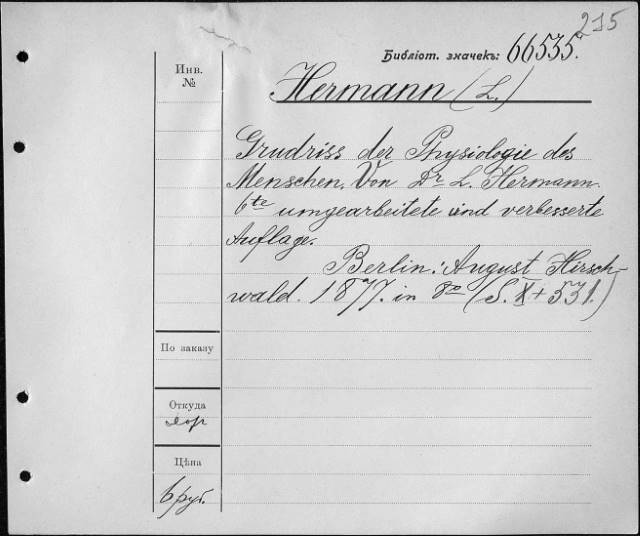 215
Библіот. значекъ: 66535.
Инв.
№
Hermann (L.)
Grudriss der Physiologie des
Menschen. Von Dr L. Hermann.
6te umgearbeitete und verbesserte
Auflage.
Berlin: August Hirsch-
wald. 1877. in 8o (S. X + 531.)
По заказу
Откуда
Цѣна
6 руб.